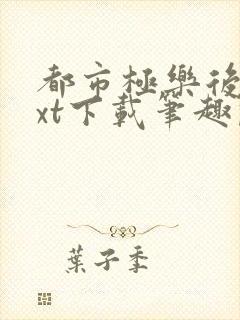 都市極樂後
xt下載筆趣
葉子季